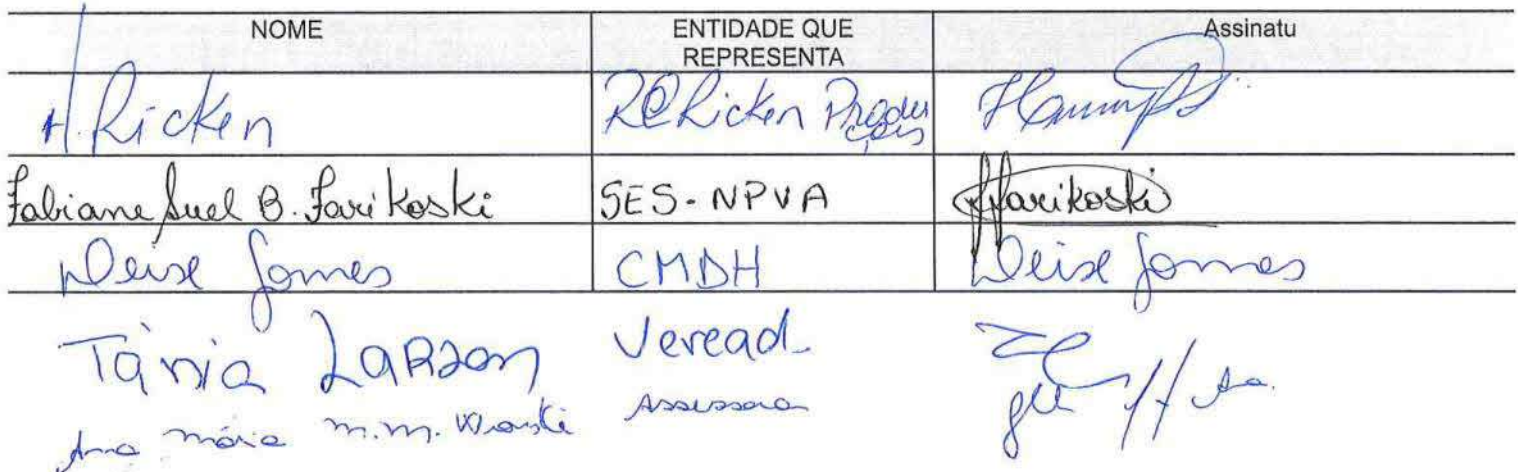 NOME ENTIDADE QUE REPRESENTA Assinatu
H. Ricken Ricken Produções
Fabiane Suel B. Farikoski SES-NPVA Farikoski
Deise Gomes CMDH Deise Gomes
Tânia Larson Veread.
Ana Mária M.M. Assessora